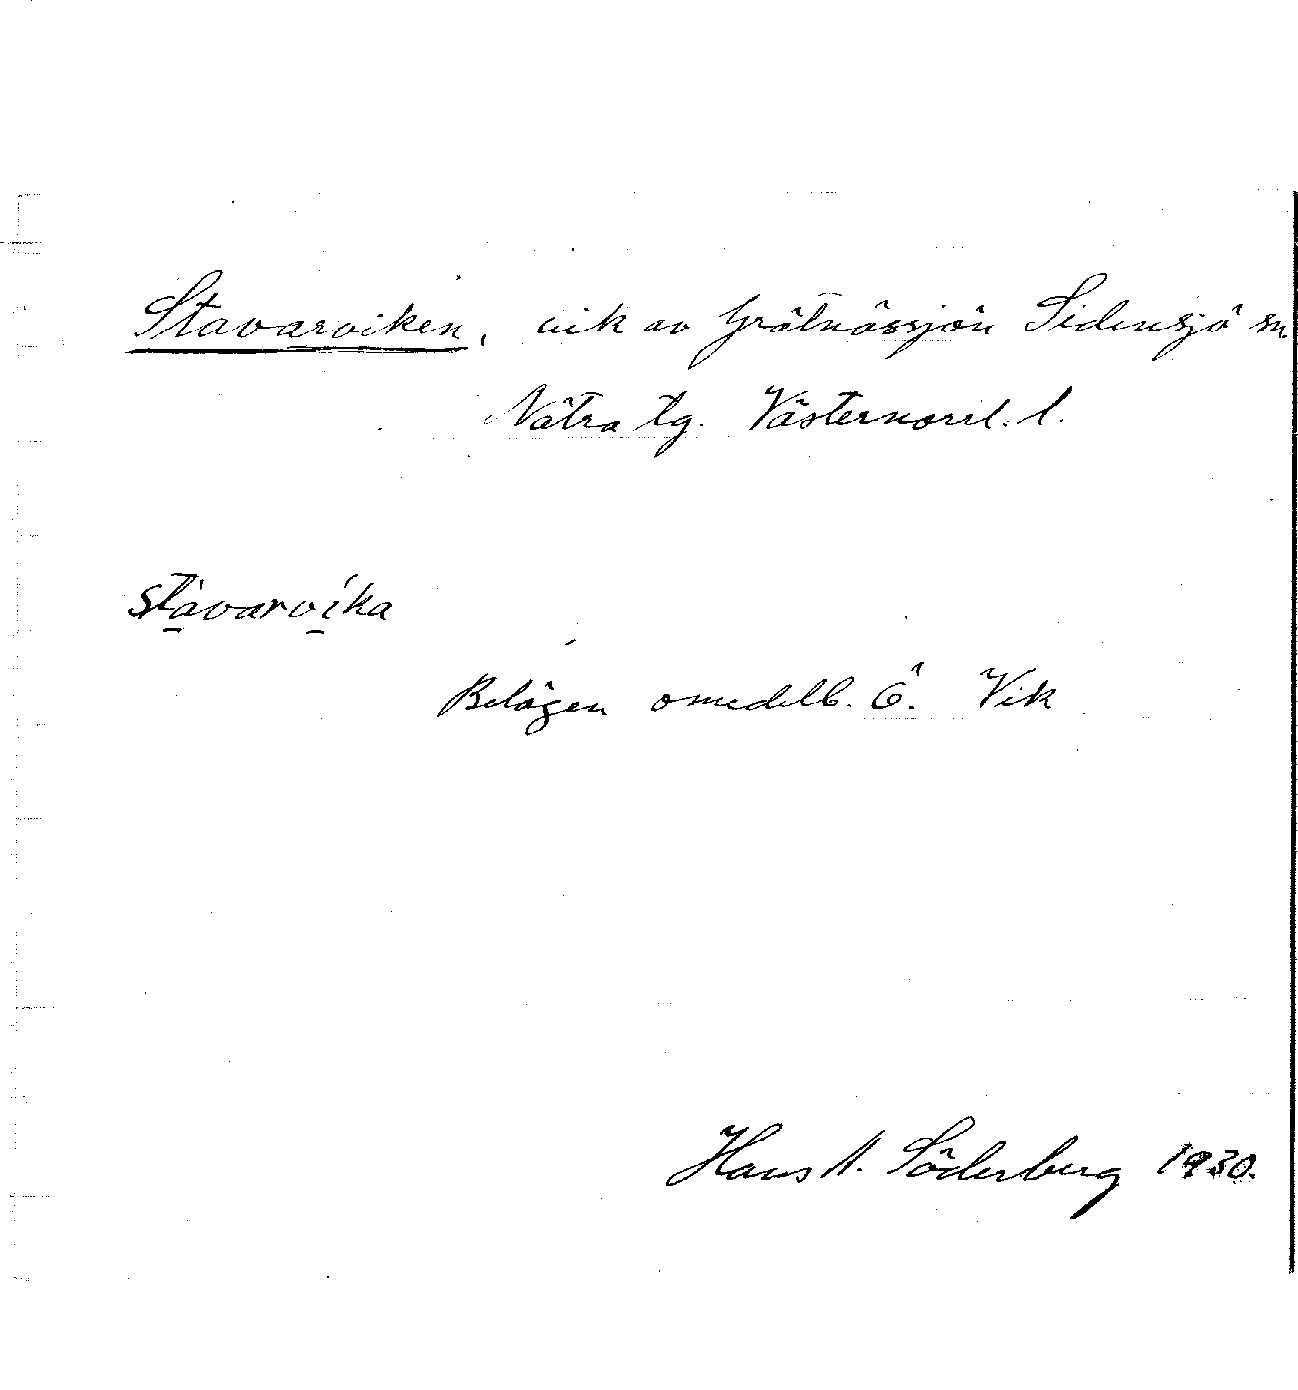 Stavarviken, vik av Grätnässjön Sidensjö sn
Nätra tg. Västernorrl. l.
stàvarvíka
Belägen omedelb. Ö. Vik
Hans A. Söderberg 1930.